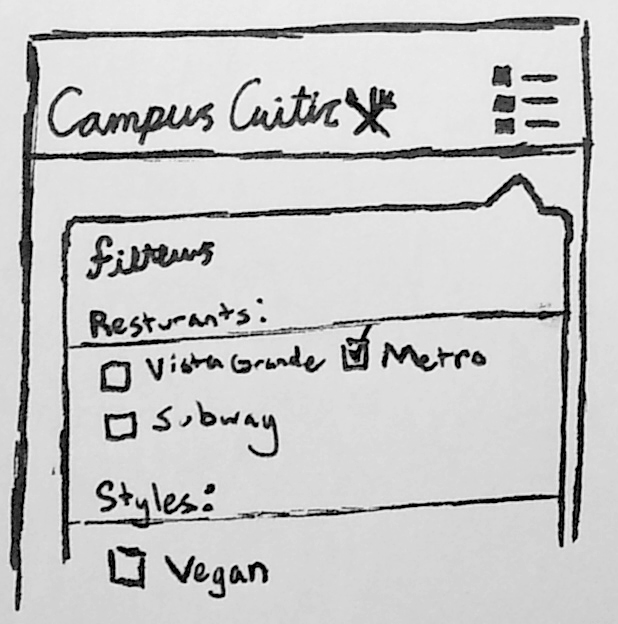 Campus Critic
Filters
Resturants:
Vista Grande Metro
Subway
Styles:
Vegan